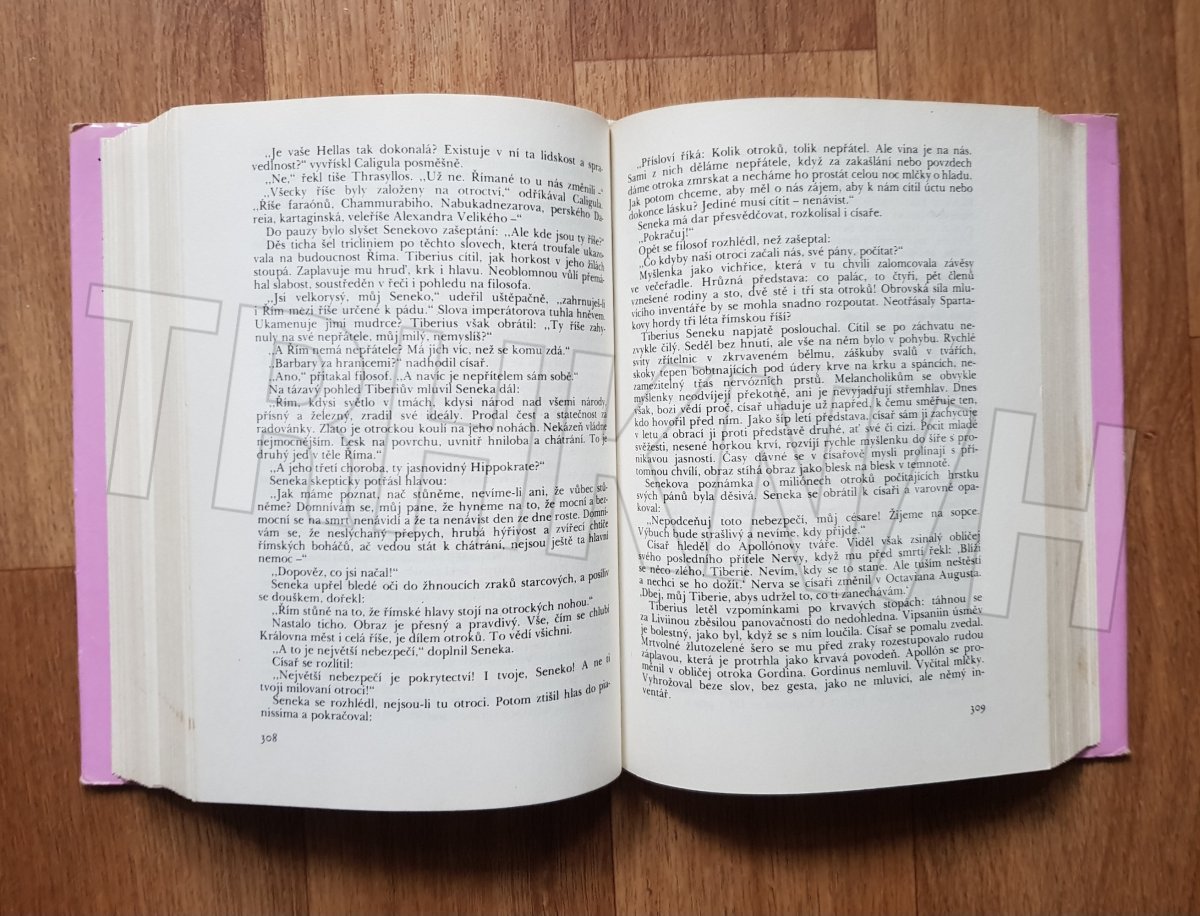 „Je vaše Hellas tak dokonalá? Existuje v ní ta lidskost a spra-
vedlnost?“ vyvřískl Caligula posměšně.
„Ne,“ řekl tiše Thrasyllos. „Už ne. Římané to u nás změnili –“
„Všecky říše byly založeny na otroctví,“ odříkával Caligula,
„Říše faraónů, Chammurabiho, Nabukadnezarova, perského Da-
reia, kartaginská, veleříše Alexandra Velikého –“
Do pauzy bylo slyšet Senekovo zašeptání: „Ale kde jsou ty říše?“
Děs ticha šel tricliniem po těchto slovech, která troufale ukazo-
vala na budoucnost Říma. Tiberius cítil, jak horkost v jeho žilách
stoupá. Zaplavuje mu hruď, krk i hlavu. Neoblomnou vůlí přemá-
hal slabost, soustředěn v řeči i pohledu na filosofa.
„Jsi velkorysý, můj Seneko,“ udeřil uštěpačně, „zahrnuješ-li
i Řím mezi říše určené k pádu.“ Slova imperátorova tuhla hněvem.
Ukamenuje jimi mudrce? Tiberius však obrátil: „Ty říše zahy-
nuly na své nepřátele, můj milý, nemyslíš?“
„A Řím nemá nepřátele? Má jich víc, než se komu zdá.“
„Barbary za hranicemi?“ nadhodil císař.
„Ano,“ přitakal filosof. „A navíc je nepřítelem sám sobě.“
Na tázavý pohled Tiberiův mluvil Seneka dál:
„Řím, kdysi světlo v tmách, kdysi národ nad všemi národy,
přísný a železný, zradil své ideály. Prodal čest a statečnost za
radovánky. Zlato je otrockou koulí na jeho nohách. Nekázeň vládne
nejmocnějším. Lesk na povrchu, uvnitř hniloba a chátrání. To je
druhý jed v těle Říma.“
„A jeho třetí choroba, ty jasnovidný Hippokrate?“
Seneka skepticky potřásl hlavou:
„Jak máme poznat, nač stůněme, nevíme-li ani, že vůbec stů-
něme? Domnívám se, můj pane, že hyneme na to, že mocní a bez-
mocní se na smrt nenávidí a že ta nenávist den ze dne roste. Domní-
vám se, že neslýchaný přepych, hrubá hýřivost a zvířecí chtíče
římských boháčů, ač vedou stát k chátrání, nejsou ještě ta hlavní
nemoc –“
„Dopověz, co jsi načal!“
Seneka upřel bledé oči do žhnoucích zraků starcových, a posíliv
se douškem, dořekl:
„Řím stůně na to, že římské hlavy stojí na otrockých nohou.“
Nastalo ticho. Obraz je přesný a pravdivý. Vše, čím se chlubí
Královna měst i celá říše, je dílem otroků. To vědí všichni.
„A to je největší nebezpečí,“ doplnil Seneka.
Císař se rozlítil:
„Největší nebezpečí je pokrytectví! I tvoje, Seneko! A ne ti
tvoji milovaní otroci!“
Seneka se rozhlédl, nejsou-li tu otroci. Potom ztišil hlas do pia-
nissima a pokračoval:
308
„Přísloví říká: Kolik otroků, tolik nepřátel. Ale vina je na nás.
Sami z nich děláme nepřátele, když za zakašlání nebo povzdech
dáme otroka zmrskat a necháme ho prostát celou noc mlčky o hladu.
Jak potom chceme, aby měl o nás zájem, aby k nám cítil úctu nebo
dokonce lásku? Jediné musí cítit – nenávist.“
Seneka má dar přesvědčovat, rozkolísal i císaře.
„Pokračuj!“
Opět se filosof rozhlédl, než zašeptal:
„Co kdyby naši otroci začali nás, své pány, počítat?“
Myšlenka jako vichřice, která v tu chvíli zalomcovala závěsy
ve večeřadle. Hrůzná představa: co palác, to čtyři, pět členů
vznešené rodiny a sto, dvě stě i tři sta otroků! Obrovská síla mlu-
vícího inventáře by se mohla snadno rozpoutat. Neotřásaly Sparta-
kovy hordy tři léta římskou říší?
Tiberius Seneku napjatě poslouchal. Cítil se po záchvatu ne-
zvykle čilý. Seděl bez hnutí, ale vše na něm bylo v pohybu. Rychlé
svity zřítelnic v zkrvaveném bělmu, záškuby svalů v tvářích,
skoky tepen bobtnajících pod údery krve na krku a spáncích, ne-
zamezitelný třas nervózních prstů. Melancholikům se obvykle
myšlenky neodvíjejí překotně, ani je nevyjadřují střemhlav. Dnes
však, bozi vědí proč, císař uhaduje už napřed, k čemu směřuje ten,
kdo hovoří před ním. Jako šíp letí představa, císař sám ji zachycuje
v letu a obrací ji proti představě druhé, ať své či cizí. Pocit mladé
svěžesti, nesené horkou krví, rozvíjí rychle myšlenku do šíře s pro-
nikavou jasností. Časy dávné se v císařově mysli prolínají s pří-
tomnou chvílí, obraz stíhá obraz jako blesk na blesk v temnotě.
Senekova poznámka o miliónech otroků počítajících hrstku
svých pánů byla děsivá. Seneka se obrátil k císaři a varovně opa-
koval:
„Nepodceňuj toto nebezpečí, můj césare! Žijeme na sopce.
Výbuch bude strašlivý a nevíme, kdy přijde.“
Císař hleděl do Apollónovy tváře. Viděl však zsinalý obličej
svého posledního přítele Nervy, když mu před smrtí řekl: ‚Blíží
se něco zlého, Tiberie. Nevím, kdy se to stane. Ale tuším neštěstí
a nechci se ho dožít.‘ Nerva se císaři změnil v Octaviana Augusta.
‚Dbej, můj Tiberie, abys udržel to, co ti zanechávám.‘
Tiberius letěl vzpomínkami po krvavých stopách: táhnou se
za Liviinou zběsilou panovačností do nedohledna. Vipsaniin úsměv
je bolestný, jako byl, když se s ním loučila. Císař se pomalu zvedal.
Mrtvolné žlutozelené šero se mu před zraky rozestupovalo rudou
záplavou, která je protrhla jako krvavá povodeň. Apollón se pro-
měnil v obličej otroka Gordina. Gordinus nemluvil. Vyčítal mlčky.
Vyhrožoval beze slov, bez gesta, jako ne mluvící, ale němý in-
ventář.
309